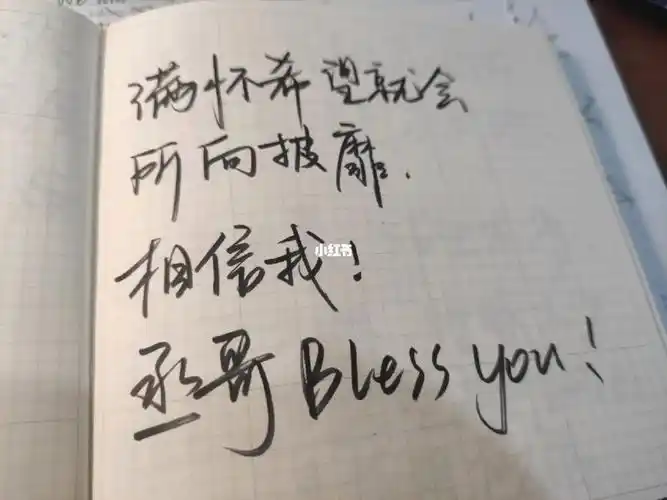 满怀希望就会
所向披靡.
相信我!
小红书
丞哥 Bless you!